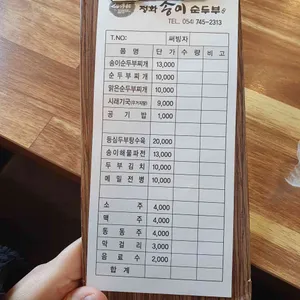 정화 송이 순두부
TEL. 054) 745-2313
T.NO: 써빙자
품 명 단 가 수 량 비 고
송이순두부찌개 13,000
순 두 부 찌 개 10,000
맑은순두부찌개 10,000
시래기국(우거지탕) 9,000
공 기 밥 1,000
등심두부탕수육 20,000
송이해물파전 13,000
두 부 김 치 10,000
메 밀 전 병 10,000
소 주 4,000
맥 주 4,000
동 동 주 4,000
막 걸 리 3,000
음 료 수 2,000
합 계